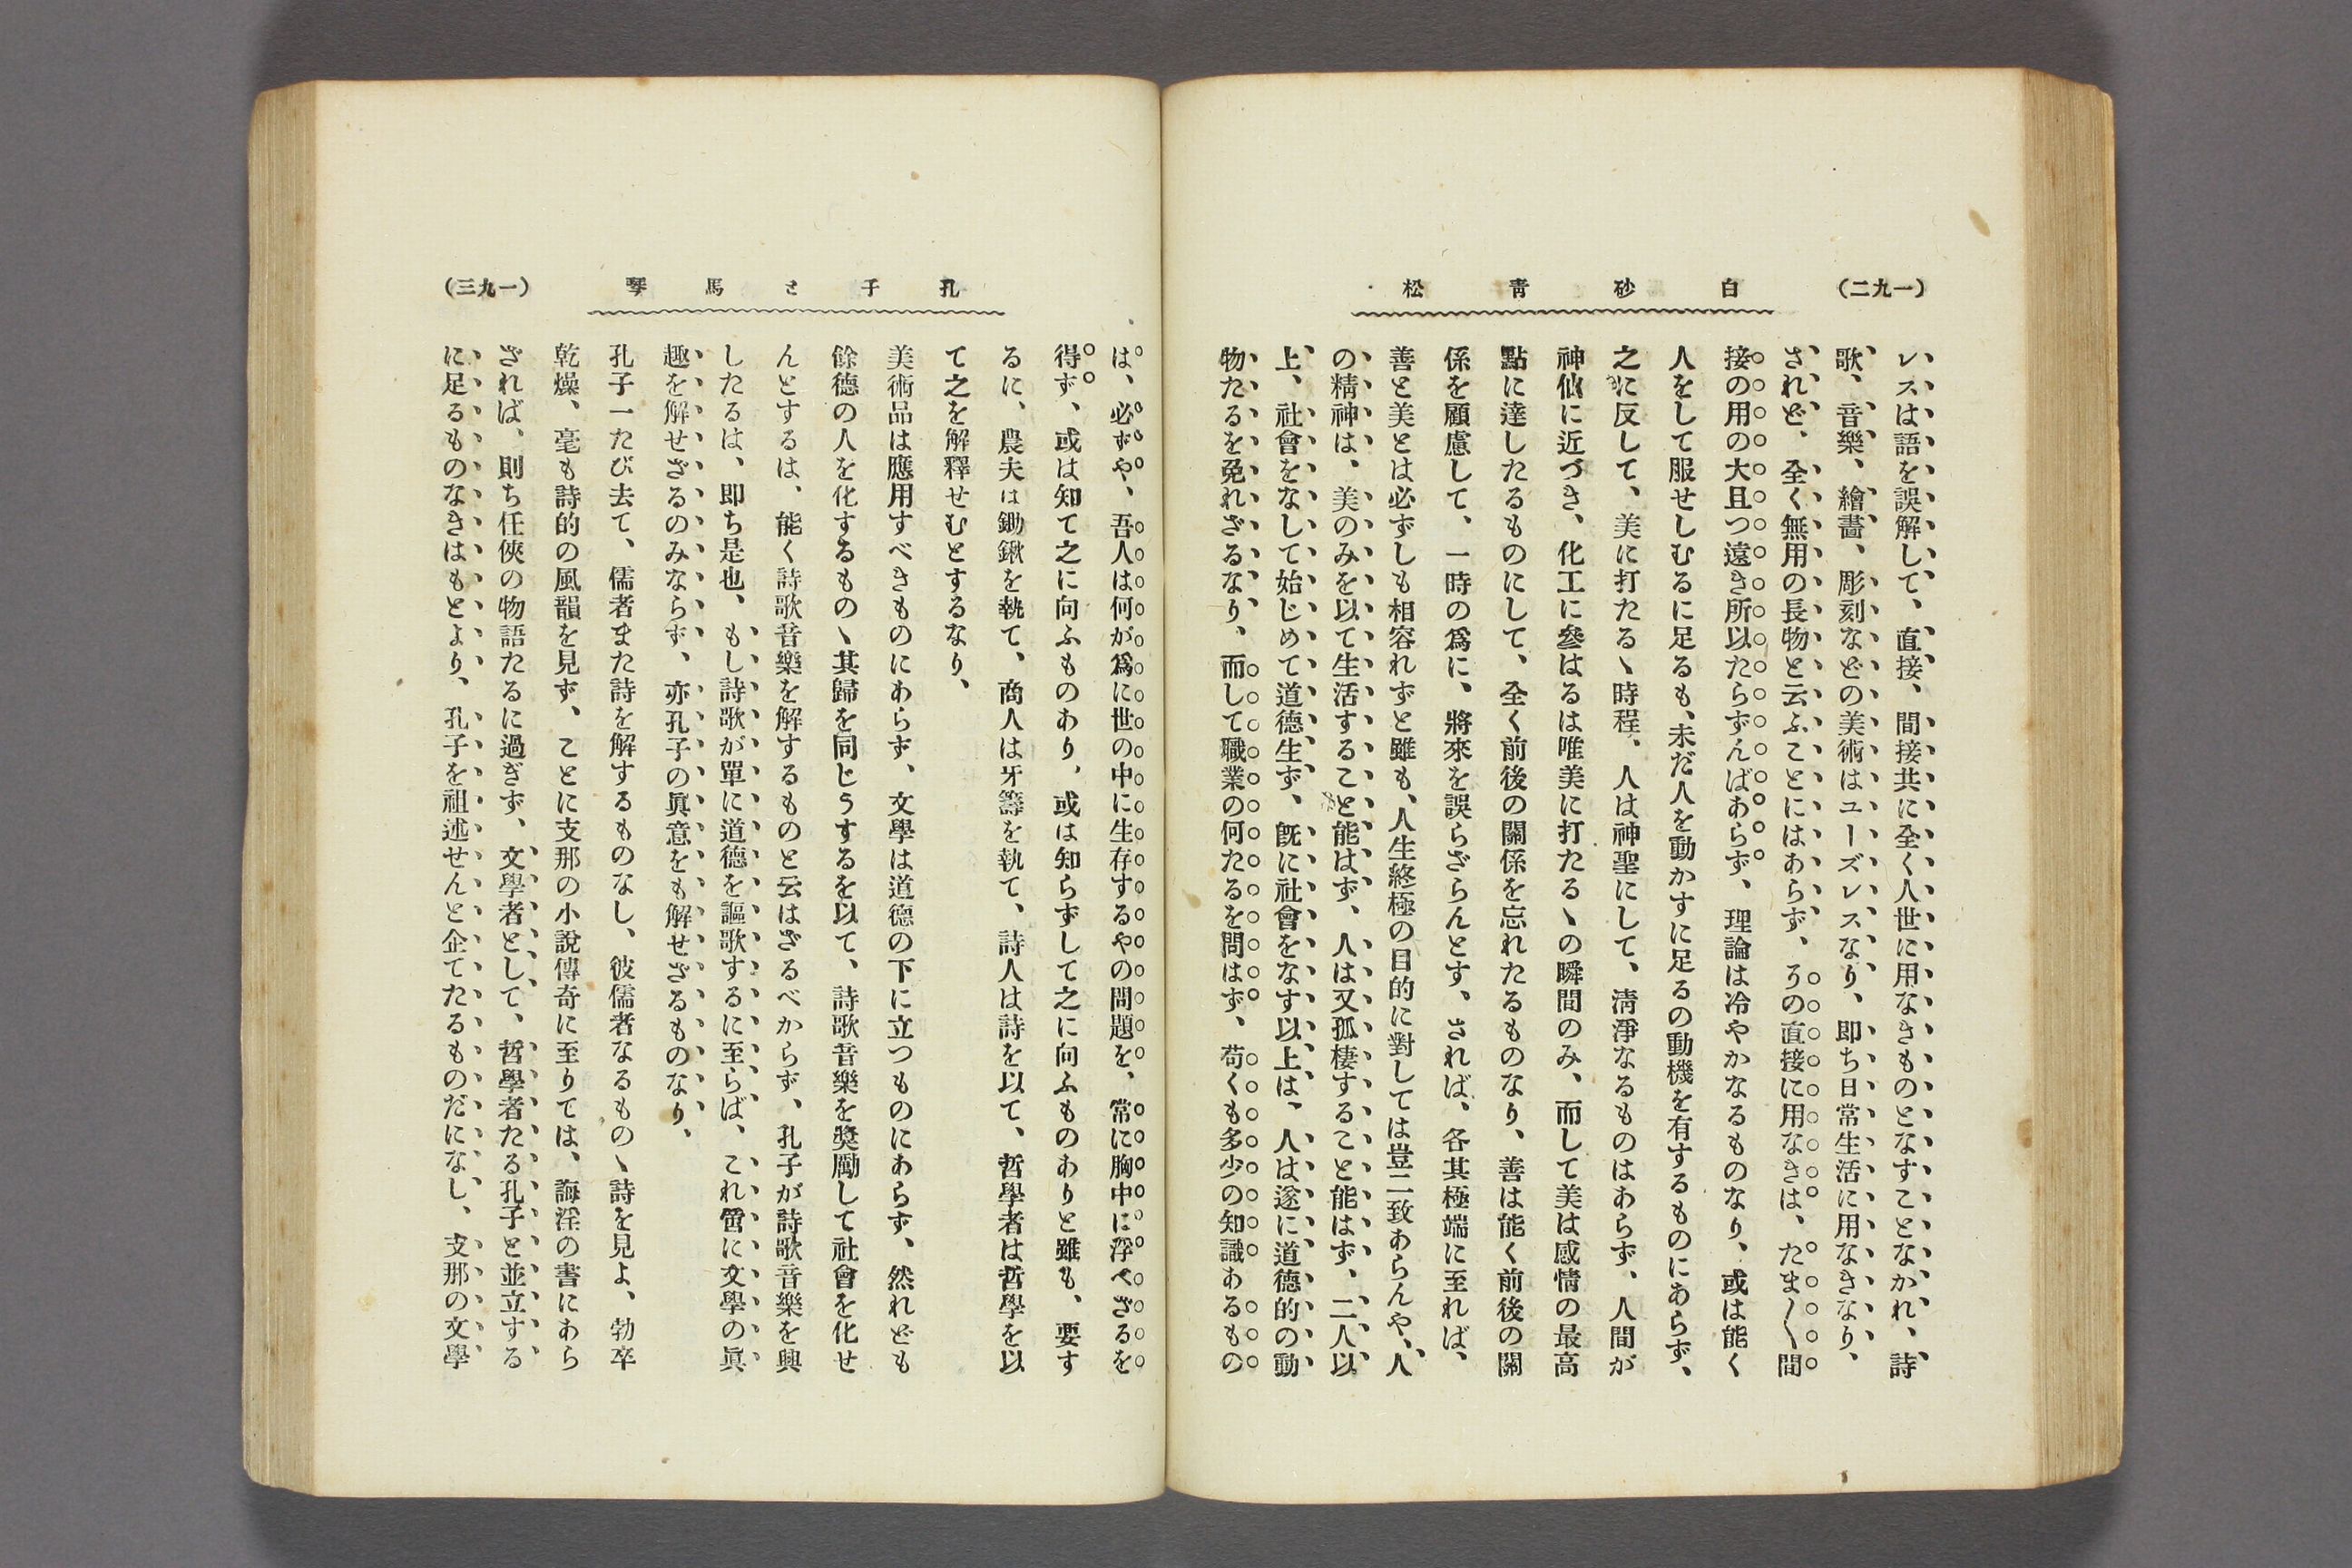 （一九二）
白砂青松
レスは語を誤解して、直接、間接共に全く人世に用なきものとなすことなかれ、詩
歌、音樂、繪畵、彫刻などの美術はユーズレスなり、即ち日常生活に用なきなり、
されど、全く無用の長物と云ふことにはあらず、ろの直接に用なきは、たま〱間
接の用の大且つ遠き所以たらずんばあらず、理論は冷やかなるものなり、或は能く
人をして服せしむるに足るも、未だ人を動かすに足るの動機を有するものにあらず、
之に反して、美に打たるゝ時程、人は神聖にして、清淨なるものはあらず、人間が
神仙に近づき、化工に參はるは唯美に打たるゝの瞬間のみ、而して美は感情の最高
點に達したるものにして、全く前後の關係を忘れたるものなり、善は能く前後の關
係を顧慮して、一時の爲に、將來を誤らざらんとす、されば、各其極端に至れば、
善と美とは必ずしも相容れずと雖も、人生終極の目的に對しては豈二致あらんや、人
の精神は、美のみを以て生活すること能はず、人は又孤棲すること能はず、二人以
上、社會をなして始じめて道德生ず、既に社會をなす以上は、人は遂に道德的の動
物たるを免れざるなり、而して職業の何たるを問はず、苟くも多少の知識あるもの
孔子と馬琴
（一九三）
は、必ずや、吾人は何が爲に世の中に生存するやの問題を、常に胸中に浮べざるを
得ず、或は知て之に向ふものあり、或は知らずして之に向ふものありと雖も、要す
るに、農夫は鋤鍬を執て、商人は牙籌を執て、詩人は詩を以て、哲學者は哲學を以
て之を解釋せむとするなり、
美術品は應用すべきものにあらず、文學は道德の下に立つものにあらず、然れども
餘德の人を化するものゝ其歸を同じうするを以て、詩歌音樂を奬勵して社會を化せ
んとするは、能く詩歌音樂を解するものと云はざるべからず、孔子が詩歌音樂を興
したるは、即ち是也、もし詩歌が單に道德を謳歌するに至らば、これ啻に文學の眞
趣を解せざるのみならず、亦孔子の眞意をも解せざるものなり、
孔子一たび去て、儒者また詩を解するものなし、彼儒者なるものゝ詩を見よ、勃卒
乾燥、毫も詩的の風韻を見ず、ことに支那の小說傳奇に至りては、誨淫の書にあら
ざれば、則ち任俠の物語たるに過ぎず、文學者として、哲學者たる孔子と並立する
に足るものなきはもとより、孔子を祖述せんと企てたるものだになし、支那の文學